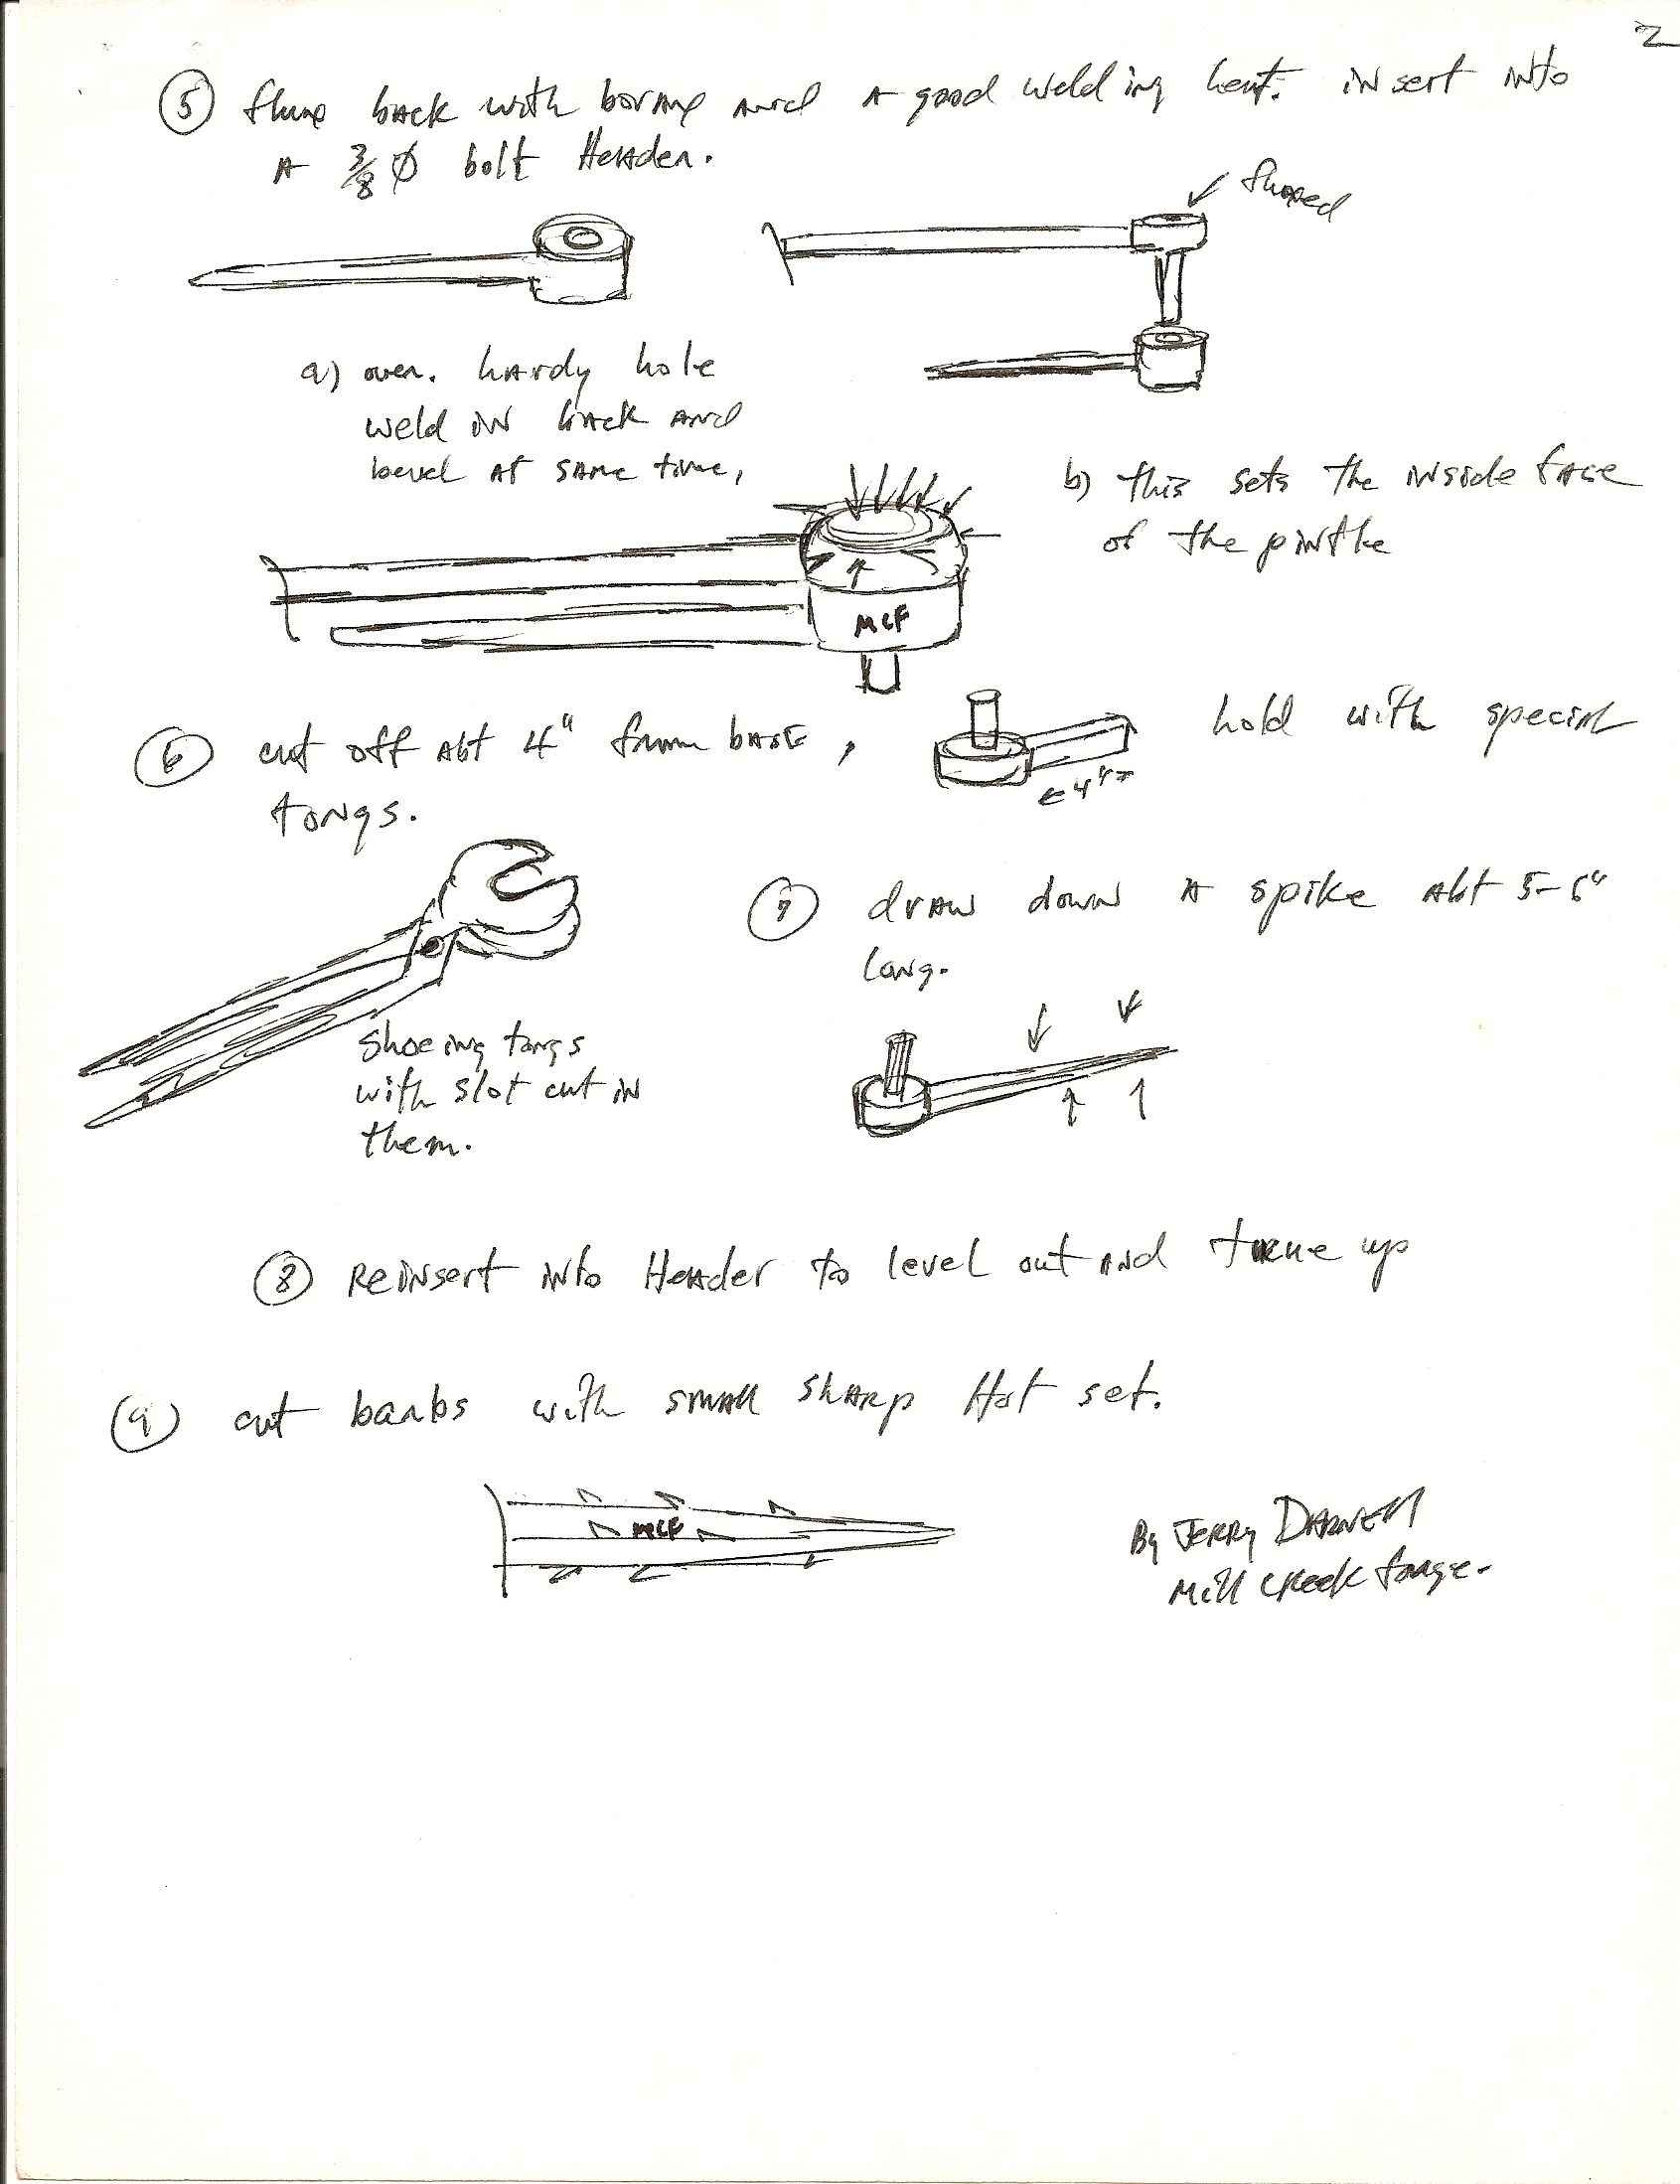 2
⑤ flux back with borax and A good welding heat. insert into
A 3/8 Ø bolt Header.
fluxed
a) over. hardy hole
weld in back and
bevel at same time,
b) this sets the inside face
of the pintle
MCF
⑥ cut off abt 4" from base, hold with special
←4"→
tongs.
⑦ draw down a spike abt 5-6"
long.
Shoeing tongs
with slot cut in
them.
⑧ Reinsert into Header to level out and true up
⑨ cut barbs with small sharp Hot set.
MCF
By Jerry Darnell
Mill Creek forge.